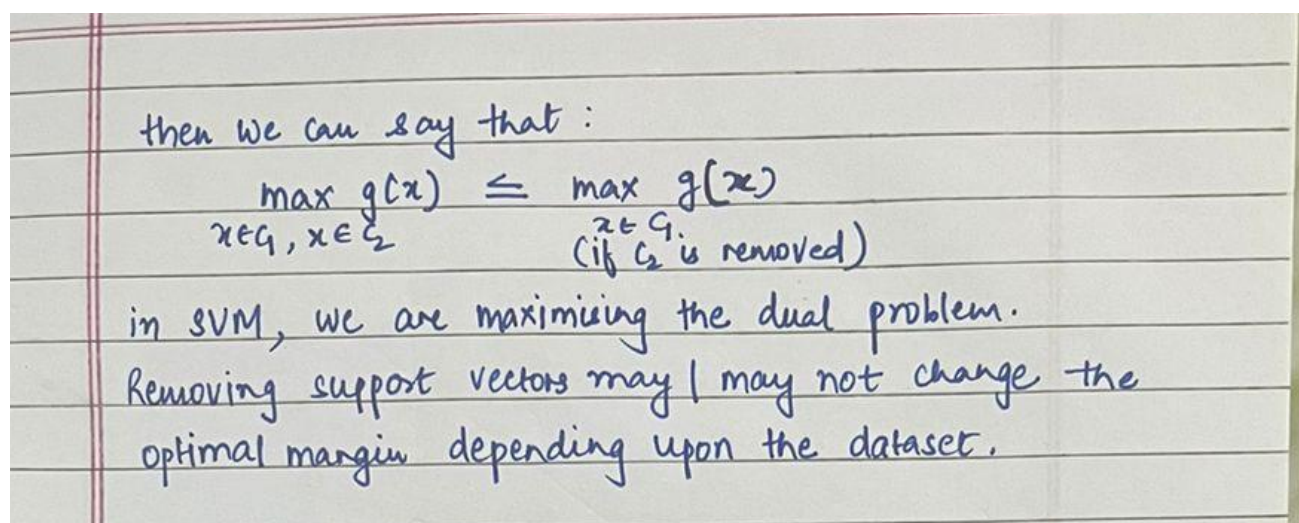 then we can say that :
max g(x) ≤ max g(x)
x∈C₁, x∈C₂ x∈C₁
(if C₂ is removed)
in SVM, we are maximising the dual problem.
Removing support vectors may / may not change the
optimal margin depending upon the dataset.